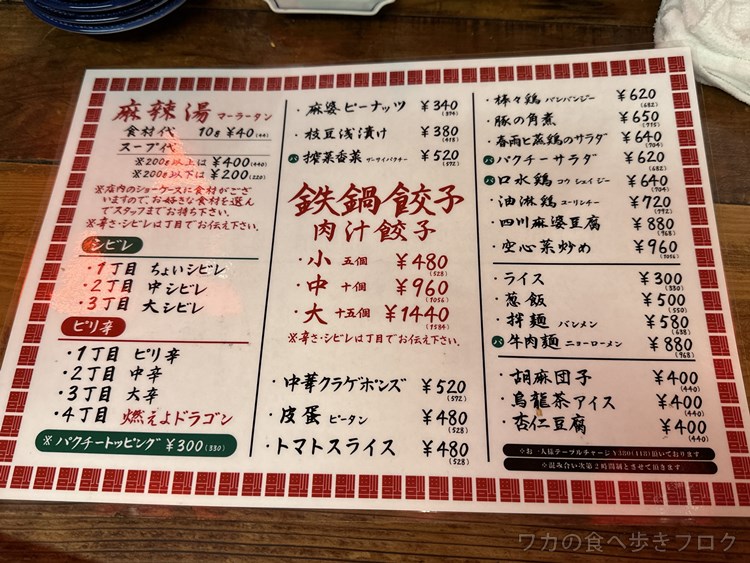 麻辣湯 マーラータン
食材代 10g ¥40(44)
スープ代
※200g以上は ¥400(440)
※200g以下は ¥200(220)
※店内のショーケースに食材がござ
いますので、お好きな食材を選ん
でスタッフまでお持ち下さい。
※辛さ・シビレは丁目でお伝え下さい。
シビレ
・1丁目 ちょいシビレ
・2丁目 中シビレ
・3丁目 大シビレ
ピリ辛
・1丁目 ピリ辛
・2丁目 中辛
・3丁目 大辛
・4丁目 燃えよドラゴン
※パクチートッピング ¥300(330)
・麻婆ピーナッツ ¥340(374)
・枝豆浅漬け ¥380(418)
パ 搾菜香菜 ザーサイパクチー ¥520(572)
鉄鍋餃子
肉汁餃子
・小 五個 ¥480(528)
・中 十個 ¥960(1056)
・大 十五個 ¥1440(1584)
※辛さ・シビレは丁目でお伝え下さい。
・中華クラゲポンズ ¥520(572)
・皮蛋 ピータン ¥480(528)
・トマトスライス ¥480(528)
・棒々鶏 バンバンジー ¥620(682)
・豚の角煮 ¥650(715)
・春雨と蒸鶏のサラダ ¥640(704)
パ パクチーサラダ ¥620(682)
パ 口水鶏 コウシェイジー ¥640(704)
・油淋鶏 ユーリンチー ¥720(792)
・四川麻婆豆腐 ¥880(968)
・空心菜炒め ¥960(1056)
・ライス ¥300(330)
・葱飯 ¥500(550)
・拌麺 バンメン ¥580(638)
パ 牛肉麺 ニョーローメン ¥880(968)
・胡麻団子 ¥400(440)
・烏龍茶アイス ¥400(440)
・杏仁豆腐 ¥400(440)
※お一人様テーブルチャージ¥380(418)頂いております
※混み合い次第2時間制とさせて頂きます。
ワカの食べ歩きブログ